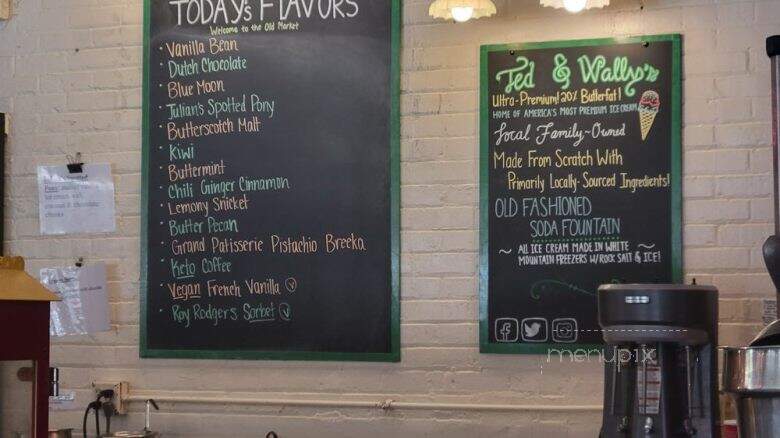 TODAY'S FLAVORS
Welcome to the Old Market
· Vanilla Bean
· Dutch Chocolate
· Blue Moon
· Julian's Spotted Pony
· Butterscotch Malt
· Kiwi
· Buttermint
· Chili Ginger Cinnamon
· Lemony Snicket
· Butter Pecan
· Grand Patisserie Pistachio Breeka
· Keto Coffee
· Vegan French Vanilla V
· Roy Rodgers Sorbet V
Ted & Wally's
Ultra-Premium! 20% Butterfat!
HOME OF AMERICA'S MOST PREMIUM ICE CREAM
Local Family-Owned
Made From Scratch With
Primarily Locally-Sourced Ingredients!
OLD FASHIONED
SODA FOUNTAIN
~ ALL ICE CREAM MADE IN WHITE ~
MOUNTAIN FREEZERS W/ROCK SALT & ICE!
menupix